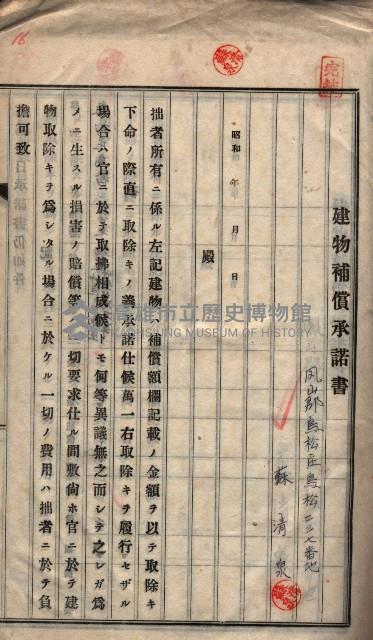 建物補償承諾書
鳳山郡鳥松庄鳥松二三七番地
蘇清泉
昭和 年 月 日
殿
拙者所有ニ係ル左記建物ハ補償額欄記載ノ金額ヲ以テ取除キ
下命ノ際直ニ取除キノ義承諾仕候萬一右取除キヲ履行セザル
場合ハ官ニ於テ取拂相成候トモ何等異議無之而シテ之レガ為
メニ生スル損害ノ賠償等一切要求仕ル間敷尚ホ官ニ於テ建
物取除キテ為シタル場合ニ於ケル一切ノ費用ハ拙者ニ於テ負
擔可致
16
高雄市立歷史博物館
KAOHSIUNG MUSEUM OF HISTORY